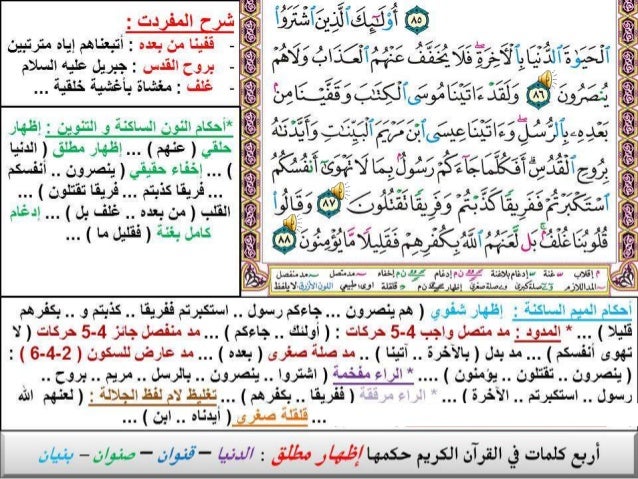 شرح المفردت :
- قفينا من بعده : أتبعناهم إياه مترتبين
- بروح القدس : جبريل عليه السلام
- غلف : مغشاة بأغشية خلقية ...
*أحكام النون الساكنة و التنوين : إظهار
حلقي ( عنهم ) ... إظهار مطلق ( الدنيا
) ... إخفاء حقيقي ( ينصرون .. أنفسكم
... فريقا كذبتم ... فريقا تقتلون ) ...
القلب ( من بعده .. غلف بل ) ... إدغام
كامل بغنة ( فقليل ما ) ...
٨٥ أُوْلَٰٓئِكَ ٱلَّذِينَ ٱشْتَرَوُا۟
ٱلْحَيَوٰةَ ٱلدُّنْيَا بِٱلْءَاخِرَةِ ۖ فَلَا يُخَفَّفُ عَنْهُمُ ٱلْعَذَابُ وَلَا هُمْ
يُنصَرُونَ ٨٦ وَلَقَدْ ءَاتَيْنَا مُوسَى ٱلْكِتَٰبَ وَقَفَّيْنَا مِنۢ
بَعْدِهِۦ بِٱلرُّسُلِ ۖ وَءَاتَيْنَا عِيسَى ٱبْنَ مَرْيَمَ ٱلْبَيِّنَٰتِ وَأَيَّدْنَٰهُ
بِرُوحِ ٱلْقُدُسِ ۗ أَفَكُلَّمَا جَآءَكُمْ رَسُولٌۢ بِمَا لَا تَهْوَىٰٓ أَنفُسُكُمُ
ٱسْتَكْبَرْتُمْ فَفَرِيقًا كَذَّبْتُمْ وَفَرِيقًا تَقْتُلُونَ ٨٧ وَقَالُوا۟
قُلُوبُنَا غُلْفٌۢ ۚ بَل لَّعَنَهُمُ ٱللَّهُ بِكُفْرِهِمْ فَقَلِيلًا مَّا يُؤْمِنُونَ ٨٨
أحكام الميم الساكنة : إظهار شفوي ( هم ينصرون ... جاءكم رسول .. استكبرتم ففريقا .. كذبتم و .. بكفرهم
قليلا ) ... * المدود : مد متصل واجب 4-5 حركات : ( أولئك .. جاءكم ) ... مد منفصل جائز 4-5 حركات ( لا
تهوى أنفسكم ) ... مد بدل ( بالآخرة .. آتينا ) .. مد صلة صغرى ( بعده ) ... مد عارض للسكون ( 2-4-6 ) :
( ينصرون .. تقتلون .. يؤمنون ) .... * الراء مفخمة ( اشتروا .. ينصرون .. بالرسل .. مريم .. بروح ..
رسول .. استكبرتم .. الآخرة ) ... * الراء مرققة ( ففريقا .. بكفرهم ) ... تغليظ لام لفظ الجلالة : ( لعنهم الله
... قلقلة صغرى ( أيدناه .. ابن ) ...
أربع كلمات في القرآن الكريم حكمها إظهار مطلق : الدنيا – قنوان – صنوان – بنيان